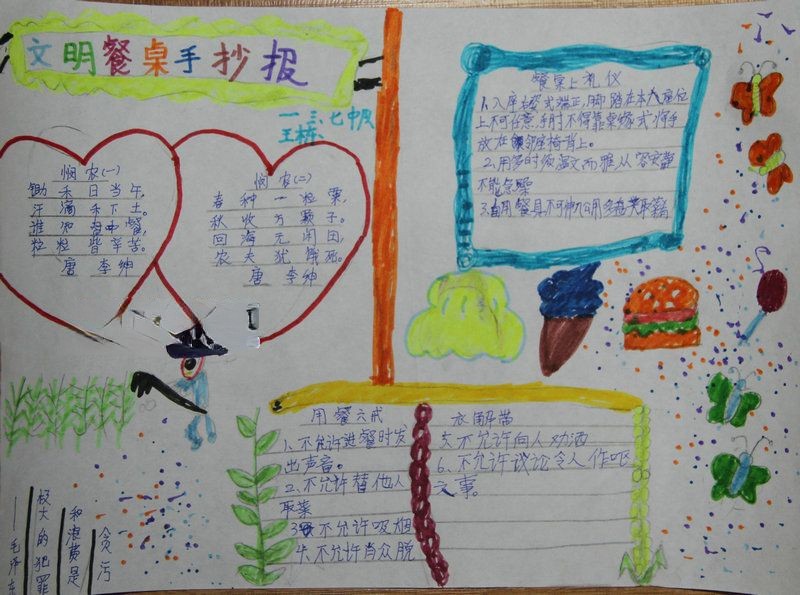 文明餐桌手抄报
一.三.七中队
王栋
悯农(一)
锄禾日当午,
汗滴禾下土。
谁知盘中餐,
粒粒皆辛苦。
唐 李绅
悯农(二)
春种一粒粟,
秋收万颗子。
四海无闲田,
农夫犹饿死。
唐 李绅
餐桌上礼仪
1.入座后姿式端正,脚踏在本人座位
上不可任意手肘不得靠桌缘式将手
放在邻座椅背上。
2.用多时须温文而雅从容安静
不能急躁
3.自用餐具不可伸入公用多盘夹取
用餐六戒
1、不允许进餐时发
出声音。
2、不允许替他人
取菜
3、不允许吸烟
4、不允许当众脱
衣解带
5、不允许向人劝酒
6、不允许议论令人作呕
之事。
贪污
和浪费是
极大的犯罪
——毛泽东